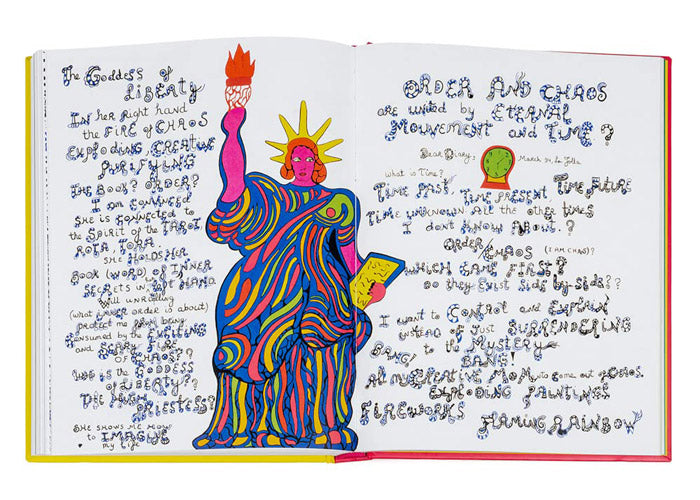 The Goddess of
Liberty
In her Right hand
the Fire of Chaos
Exploding, Creative
Purifying
The Book? Order?
I am convinced
She is connected to
the Spirit of the Tarot
Rota Tora.
She holds her
Book (Word) of Inner
Secrets in left hand
Will unveiling
(what order is about)
protect me from being
consumed by the Exciting
and Scary Fire
of Chaos?
Who is the Goddess
of Liberty?
The High
Priestess?
She shows me how
to Imagine
my life
Order and Chaos
are united by Eternal
Movement and Time?
Dear Diary, March 24, La Jolla
What is Time?
Time Past, Time Present Time Future
Time unknown All the other times
I don't know about?
Order
Chaos (I am Chaos)?
Which came First?
Do they exist side by side??
I want to Control and Explain
instead of just Surrendering
to the Mystery
Bang! Bang!
All my Creative MoM come out of Chaos.
Exploding Paintings
Fireworks
Flaming Rainbow